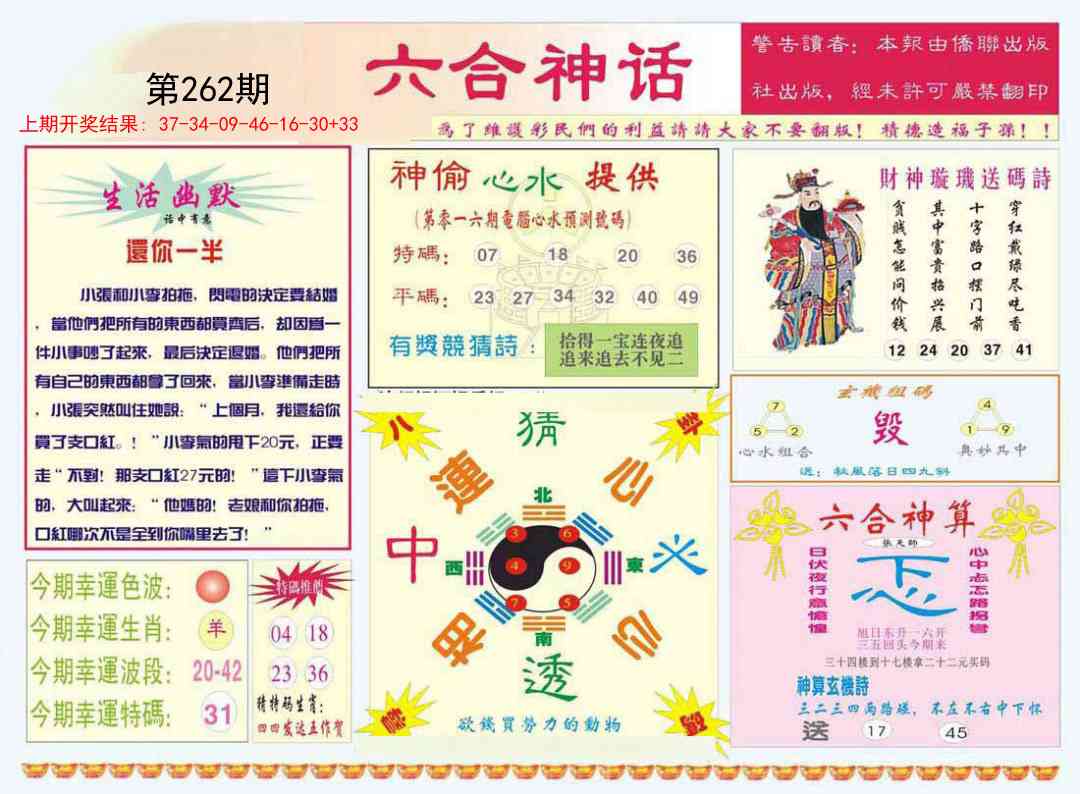 第262期
上期开奖结果：37-34-09-46-16-30+33
六合神话
警告讀者：本報由僑聯出版
社出版，經未許可嚴禁翻印
為了維護彩民們的利益請請大家不要翻版！積德造福子孫！！
生活幽默
話中有意
還你一半
小張和小李拍拖，閃電的決定要結婚
，當他們把所有的東西都買齊后，却因爲一
件小事吵了起來，最后決定退婚。他們把所
有自己的東西都拿了回來，當小李準備走時
，小張突然叫住她說：“上個月，我還給你
買了支口紅。！”小李氣的甩下20元，正要
走“不對！那支口紅27元的！”這下小李氣
的，大叫起來：“他媽的！老娘和你拍拖，
口紅哪次不是全到你嘴里去了！”
神偷心水提供
（第零一六期電腦心水預測號碼）
特碼： 07 18 20 36
平碼： 23 27 34 32 40 49
有獎競猜詩：
拾得一宝连夜追
追来追去不见二
財神璇璣送碼詩
穿红戴绿尽吃香
十字路口摆门前
其中富贵招兴展
贫贱怎能问价钱
12 24 20 37 41
玄機组码
7
5 2
心水组合
毁
4
1 9
奥妙其中
送：秋風落日四九斜
八
卦
猜
連
心
中
火
相
心
透
北
西
東
南
3 6
4 9
7 5
欲錢買勞力的動物
六合神算
張天師
日伏夜行意愴惶
心中忐忑路拐彎
旭日东升一六开
三五回头今期来
三十四楼到十七楼拿二十二元买码
神算玄機詩
三二三四两路碰，不左不右中下怀
送 17 45
今期幸運色波：
今期幸運生肖： 羊
今期幸運波段： 20-42
今期幸運特碼： 31
特碼推薦
04 18
23 36
猜特码生肖：
四四发达五作贺